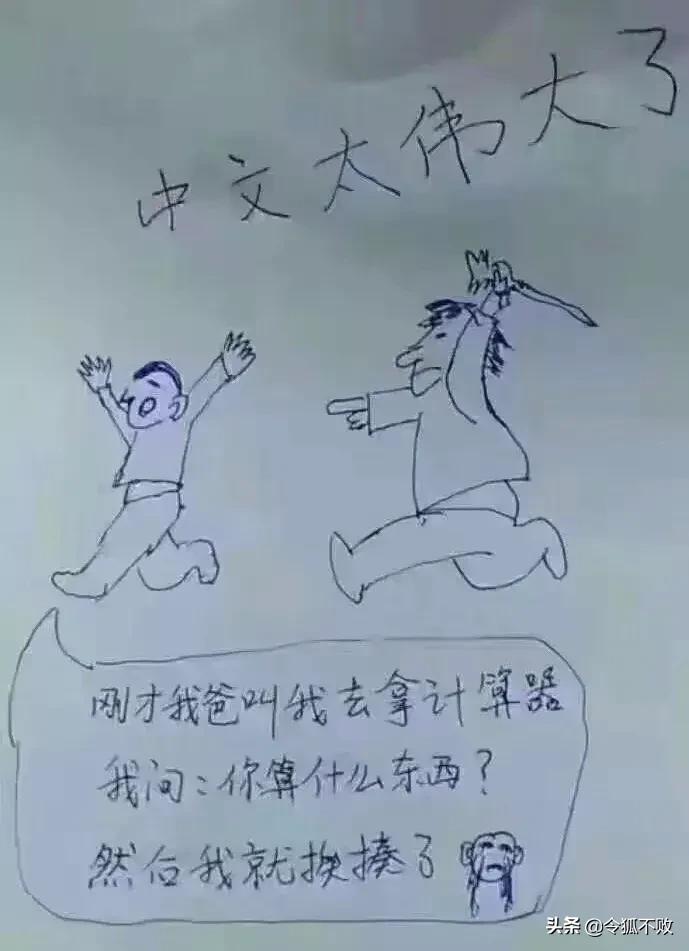 中文太伟大了
刚才我爸叫我去拿计算器
我问：你算什么东西？
然后我就挨揍了
头条 @令狐不败